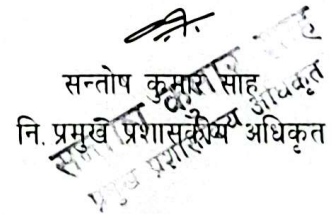 सन्तोष कुमार साह
नि. प्रमुख प्रशासकीय अधिकृत
सन्तोष कुमार साह
प्रमुख प्रशासकीय अधिकृत